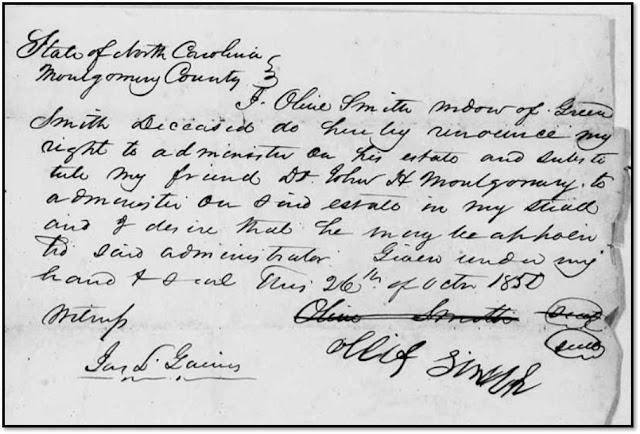 State of North Carolina
Montgomery County
I. Olive Smith widow of Green
Smith Deceased do hereby renounce my
right to administer on his estate and substi
tute my friend Dr. John H Montgomery. to
administer on said estate in my stead
and I desire that he may be appoin
ted said administrator. Given under my
hand & seal This 26th of Octr 1850
Witness Olive Smith seal
seal
Jas L. Gaines Ollif Smith